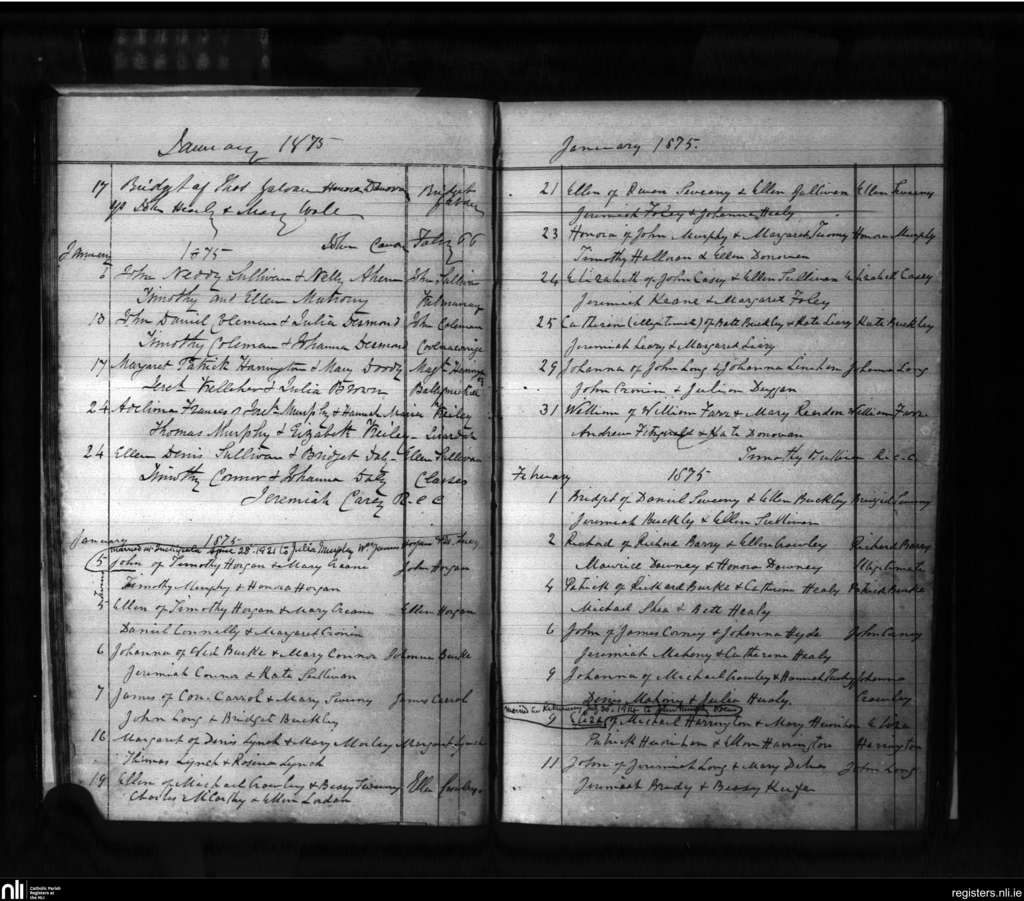 January 1875
17 Bridget of Thos Galvan Honora Donovan Bridget
Sp John Healy & Mary Wole
January 1875 John Canon Foley 66
6 John Neddy Sullivan & Nelly Ahern John Sullivan
Timothy and Ellen Mahony
13 John Daniel Coleman & Julia Desmond John Coleman
Timothy Coleman & Johanna Desmond
17 Margaret Patrick Harrington & Mary Doody Magt Harrington
Kelleher & Julia Brown
24 Adelina Frances Murphy & Hannah Maria Keiley
Thomas Murphy & Elizabeth Keiley
24 Ellen Denis Sullivan & Bridget Daly Ellen Sullivan
Timothy Connor & Johanna Daly Classes
Jeremiah Carey R C C
January 1875
married in June 28. 1921 to Julia Murphy
5 John of Timothy Horgan & Mary Creane John Horgan
Timothy Murphy & Honora Horgan
5 Ellen of Timothy Horgan & Mary Creane Ellen Horgan
Daniel Connelly & Margaret Cronin
6 Johanna of Edd Burke & Mary Connor Johanna Burke
Jeremiah Connor & Kate Sullivan
7 James of Con. Carrol & Mary Sweeny James Carrol
John Long & Bridget Buckley
16 Margaret of Denis Lynch & Mary Morley Margaret Lynch
Thomas Lynch & Rosena Lynch
19 Ellen of Michael Crowley & Bessy Sweeny Ellen Crowley
Charles McCarthy & Ellen Lordan
January 1875.
21 Ellen of Owen Sweeny & Ellen Gallivan Ellen Sweeny
Jeremiah Foley & Johanna Healy
23 Honora of John Murphy & Margaret Twomy Honora Murphy
Timothy Halloran & Ellen Donovan
24 Elizabeth of John Casey & Ellen Sullivan Elizabeth Casey
Jeremiah Keane & Margaret Foley
25 Catherine (illegitimate) of Batt Buckley & Kate Leary Kate Buckley
Jeremiah Leary & Margaret Leary
29 Johanna of John Long & Johanna Linehan Johanna Long
John Cronin & Julian Duggan
31 William of William Farr & Mary Reardon William Farr
Andrew Fitzgerald & Kate Donovan
Timothy R.C.C.
February 1875
1 Bridget of Daniel Sweeny & Ellen Buckley Bridget Sweeny
Jeremiah Buckley & Ellen Sullivan
2 Richard of Richard Barry & Ellen Crowley Richard Barry
Maurice Downey & Honora Downey Illegitimate
4 Patrick of Richard Burke & Catherine Healy Patrick Burke
Michael Shea & Bett Healy
6 John of James Corney & Johanna Hyde John Carney
Jeremiah Mahony & Catherine Healy
9 Johanna of Michael Crowley & Hannah Johanna
Denis Mahony & Julia Healy. Crowley
married in
9 Eliza of Michael Harrington & Mary Hunihan Eliza
Patrick Hunihan & Ellen Harrington Harrington
11 John of Jeremiah Long & Mary John Long
Jeremiah Brady & Bessy Keefe
nli Catholic Parish Registers at the NLI
registers.nli.ie